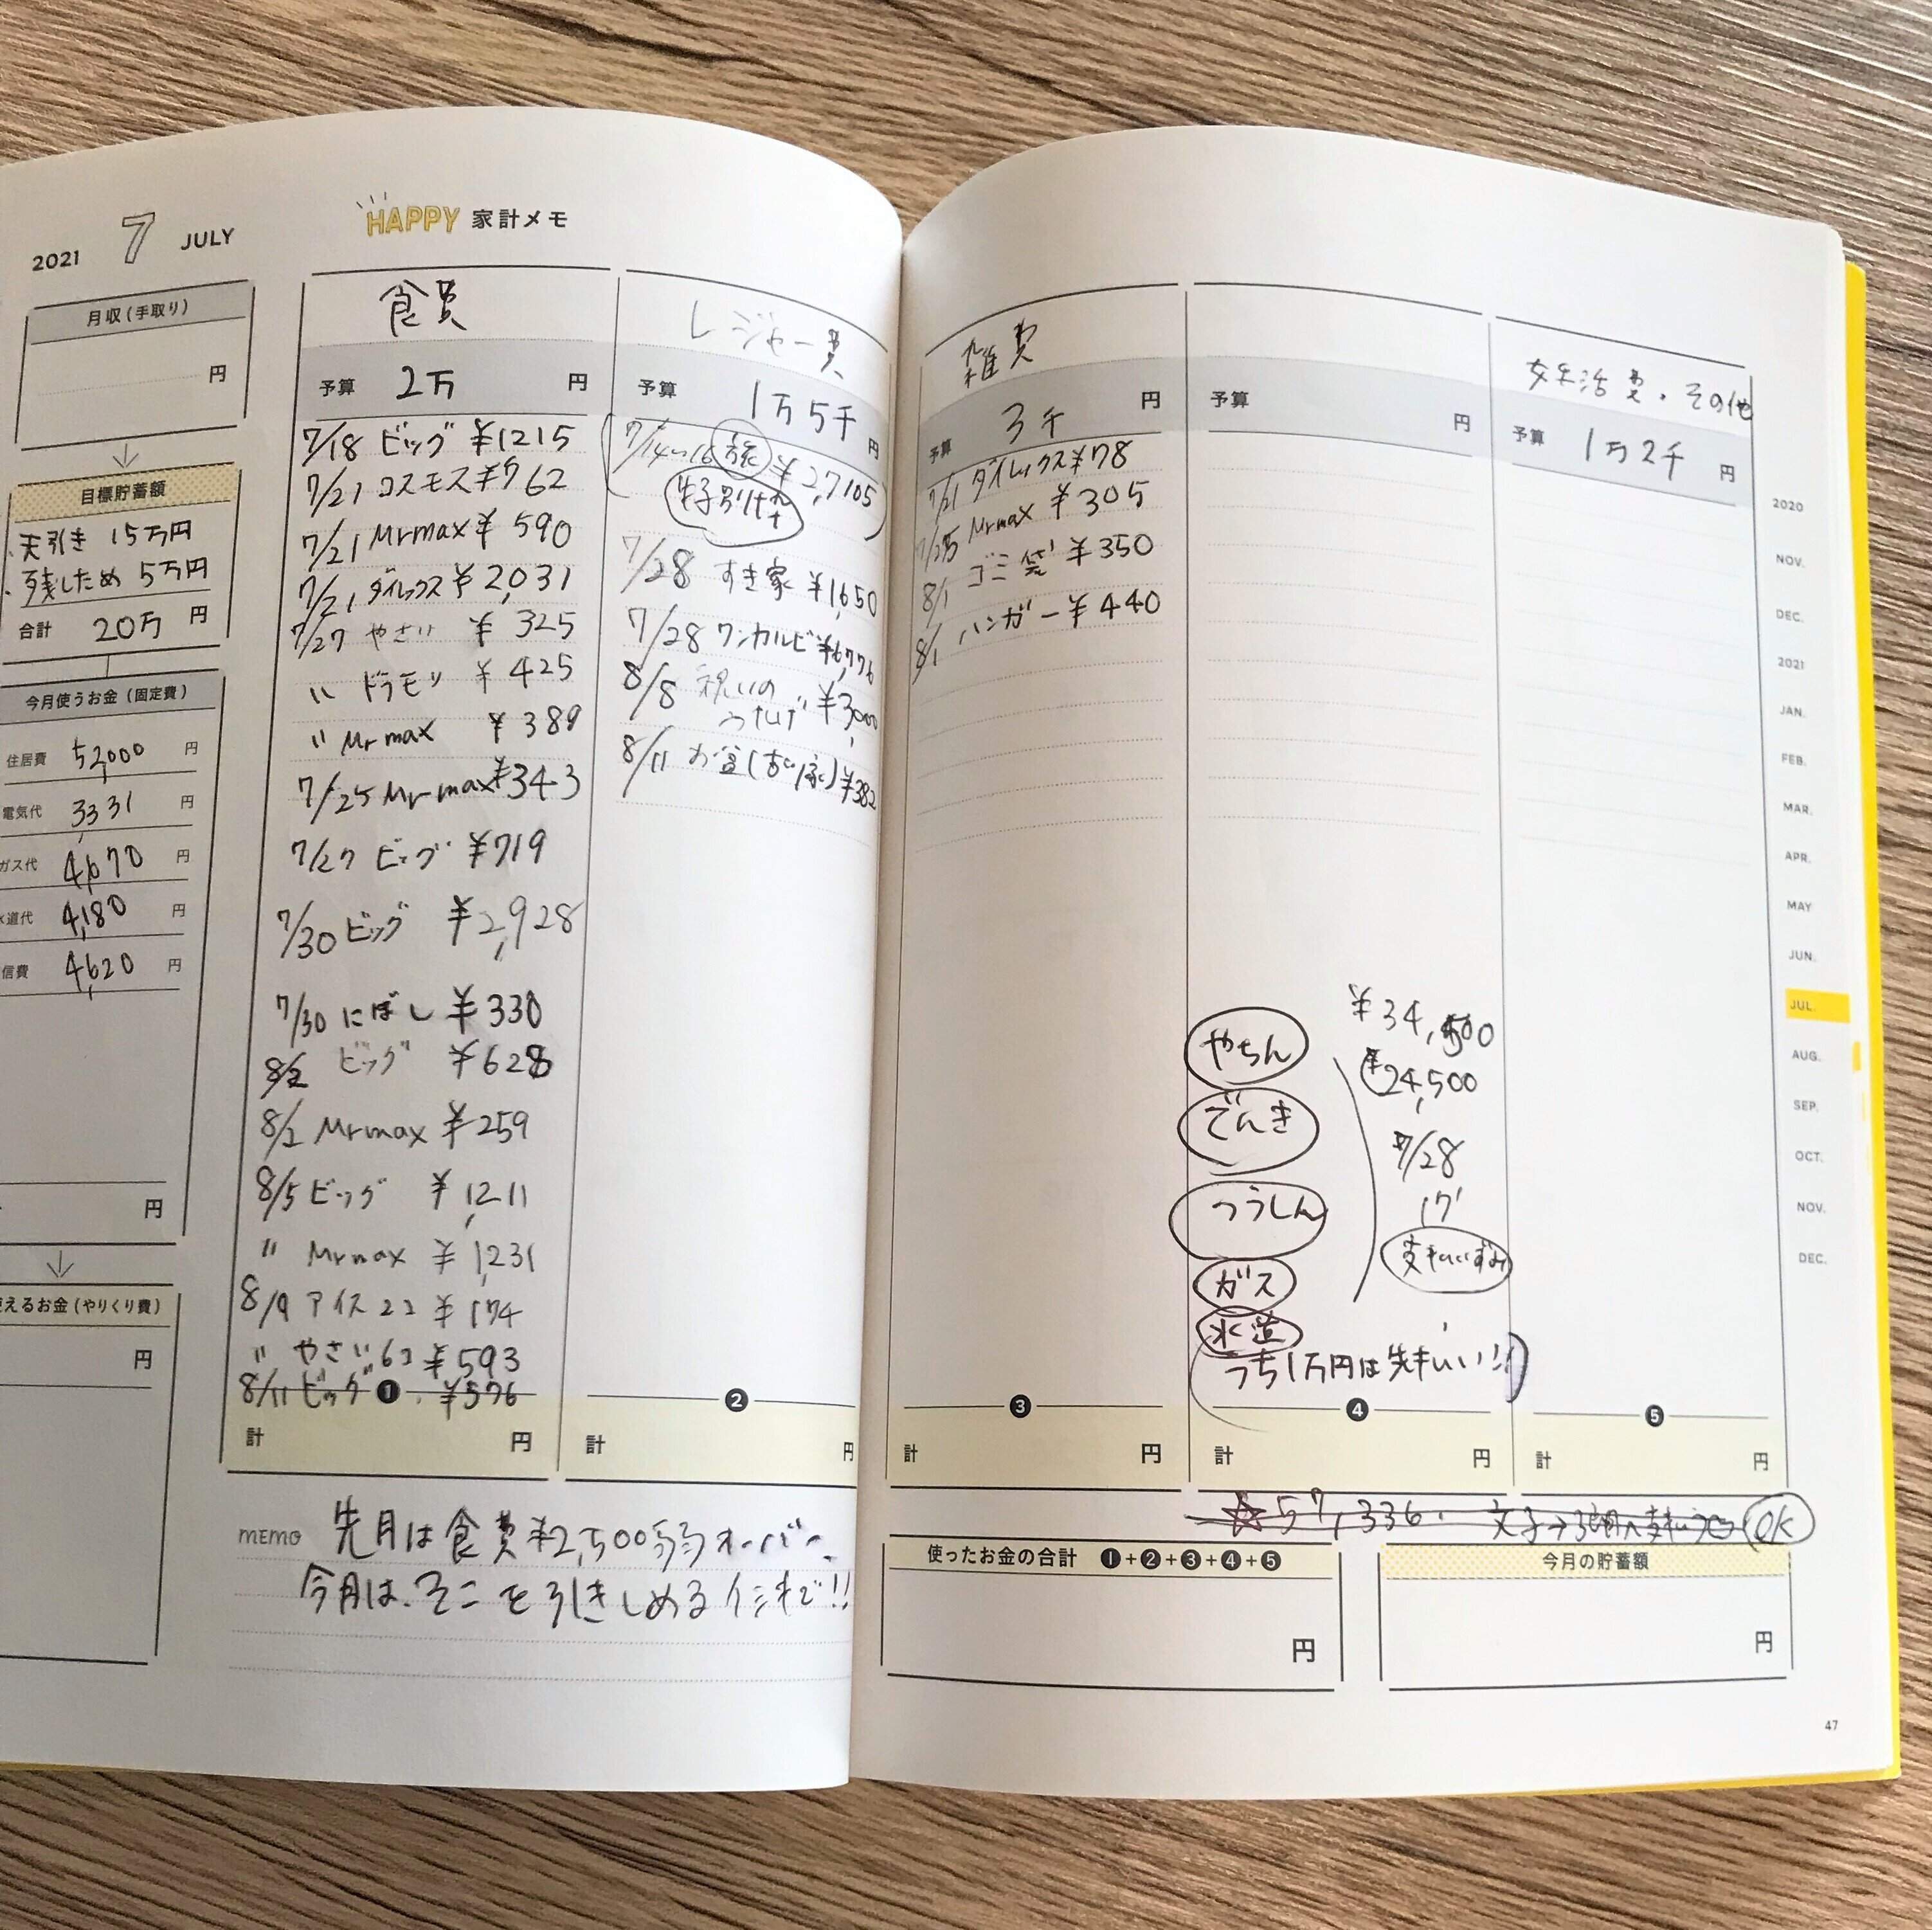 2021 7 JULY
HAPPY 家計メモ
月収(手取り)
円
目標貯蓄額
・天引き 15万円
・残しため 5万円
合計 20万 円
今月使うお金(固定費)
住居費 52,000 円
電気代 3,331 円
ガス代 4,670 円
道代 4,180 円
信費 4,620 円
円
えるお金(やりくり費)
円
食費
予算 2万 円
7/18 ビッグ ¥1215
7/21 コスモス ¥762
7/21 Mrmax ¥590
7/21 ダイレックス ¥2,031
7/27 やさい ¥325
〃 ドラモリ ¥425
〃 Mrmax ¥389
7/25 Mrmax ¥343
7/27 ビッグ ¥719
7/30 ビッグ ¥2,928
7/30 にぼし ¥330
8/2 ビッグ ¥628
8/2 Mrmax ¥259
8/5 ビッグ ¥1,211
〃 Mrmax ¥1,231
8/9 アイス22 ¥174
〃 やさい6コ ¥593
8/11 ビッグ ¥576
1
計 円
レジャー費
予算 1万5千 円
7/14~16 旅 ¥2,7105
特別費
7/28 すき家 ¥1,650
7/28 ワンカルビ ¥6,776
8/8 祝いの
うたげ ¥3,000
8/11 お盆 ¥382
2
計 円
MEMO 先月は食費¥2,500弱オーバー
今月は、そこを引きしめる
雑費
予算 3千 円
7/21 ダイレックス ¥78
7/25 Mrmax ¥305
8/1 ゴミ袋 ¥350
8/1 ハンガー ¥440
3
計 円
予算 円
やちん
でんき
つうしん
ガス
水道
¥34,500
¥24,500
7/28
支払いずみ
うち1万円は先払い!!
4
計 円
女子活費・その他
予算 1万2千 円
5
計 円
☆57,336.
OK
使ったお金の合計 1+2+3+4+5
円
今月の貯蓄額
円
2020
NOV.
DEC.
2021
JAN.
FEB.
MAR.
APR.
MAY
JUN.
JUL.
AUG.
SEP.
OCT.
NOV.
DEC.
47